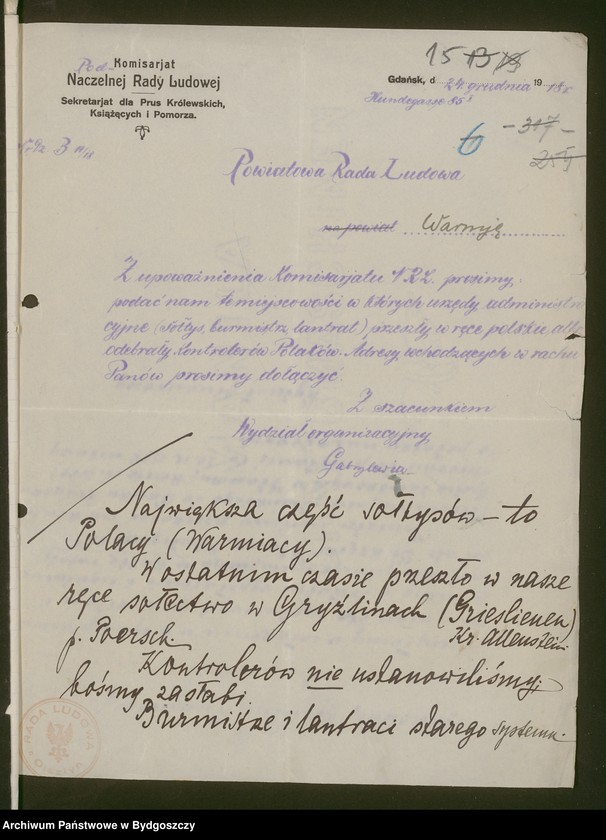 Pod-Komisarjat
Naczelnej Rady Ludowej
Sekretarjat dla Prus Królewskich,
Książęcych i Pomorza.
15 13 19
Gdańsk, d. 24. grudnia 1918
Hundegasse 85
6
- 317 -
259
Powiatowa Rada Ludowa
na powiat Warmję
Z upoważnienia Komisarjatu N.R.L. prosimy
podać nam te miejscowości w których urzędy administra
cyjne (sołtys, burmistrz, lantrat) przeszły w ręce polskie, albo
odebrały Kontrolerów Polaków. Adresy wchodzących w rachu
Panów prosimy dołączyć.
Z szacunkiem
Wydział organizacyjny
Największa część sołtysów - to
Polacy (Warmiacy).
W ostatnim czasie przeszło w nasze
ręce sołectwo w Gryźlinach (Grieslienen)
Kr. Allenstein
p. Poersch.
Kontrolerów nie ustanowiliśmy,
bośmy za słabi.
Burmistrze i lantraci starego systemu.
RADA LUDOWA
Archiwum Państwowe w Bydgoszczy